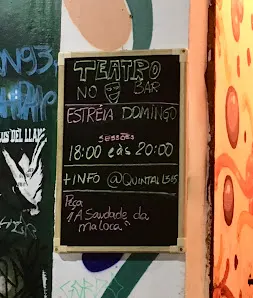 TEATRO
NO BAR
ESTRÉIA DOMINGO
SESSÕES
18:00 eàs 20:00
+INFO @QUINTAL1515
Peça
"A Saudade da
maloca"